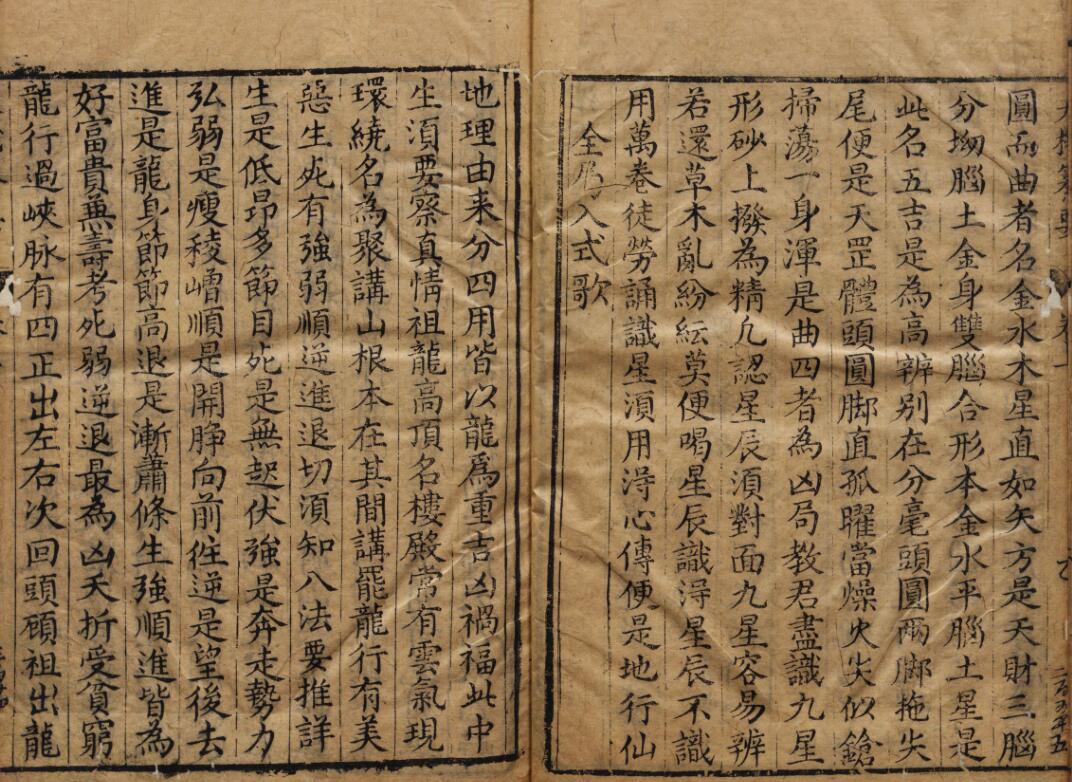 圓而曲者名金水木星直如矢方是天財三腦
分拗腦土金身雙腦合形本金水平腦土星是
此名五吉是為高辨别在分毫頭圓兩脚拖尖
尾便是天罡體頭圓脚直孤曜當燥火尖似鎗
掃蕩一身渾是曲四者為凶局教君盡識九星
形砂上撥為精九認星辰須對面九星容易辨
若還草木亂紛紜莫便喝星辰識淂星辰不識
用萬卷徒勞誦識星須用淂心傳便是地行仙
入式歌
地理由来分四用皆以龍爲重吉凶禍福此中
生須要察真情祖龍高頂名樓殿常有雲氣現
環繞名為聚講山根本在其間講罷龍行有美
惡生死有強弱順逆進退切須知八法要推詳
生是低昻多節目死是無起伏強是奔走勢力
弘弱是瘦稜嶒順是開睁向前徃逆是望後去
進是龍身節節高退是漸蕭條生強順進皆為
好富貴兼壽考死弱逆退最為凶夭折受貧窮
龍行過峽脉有四正出左右次回頭顧祖出龍